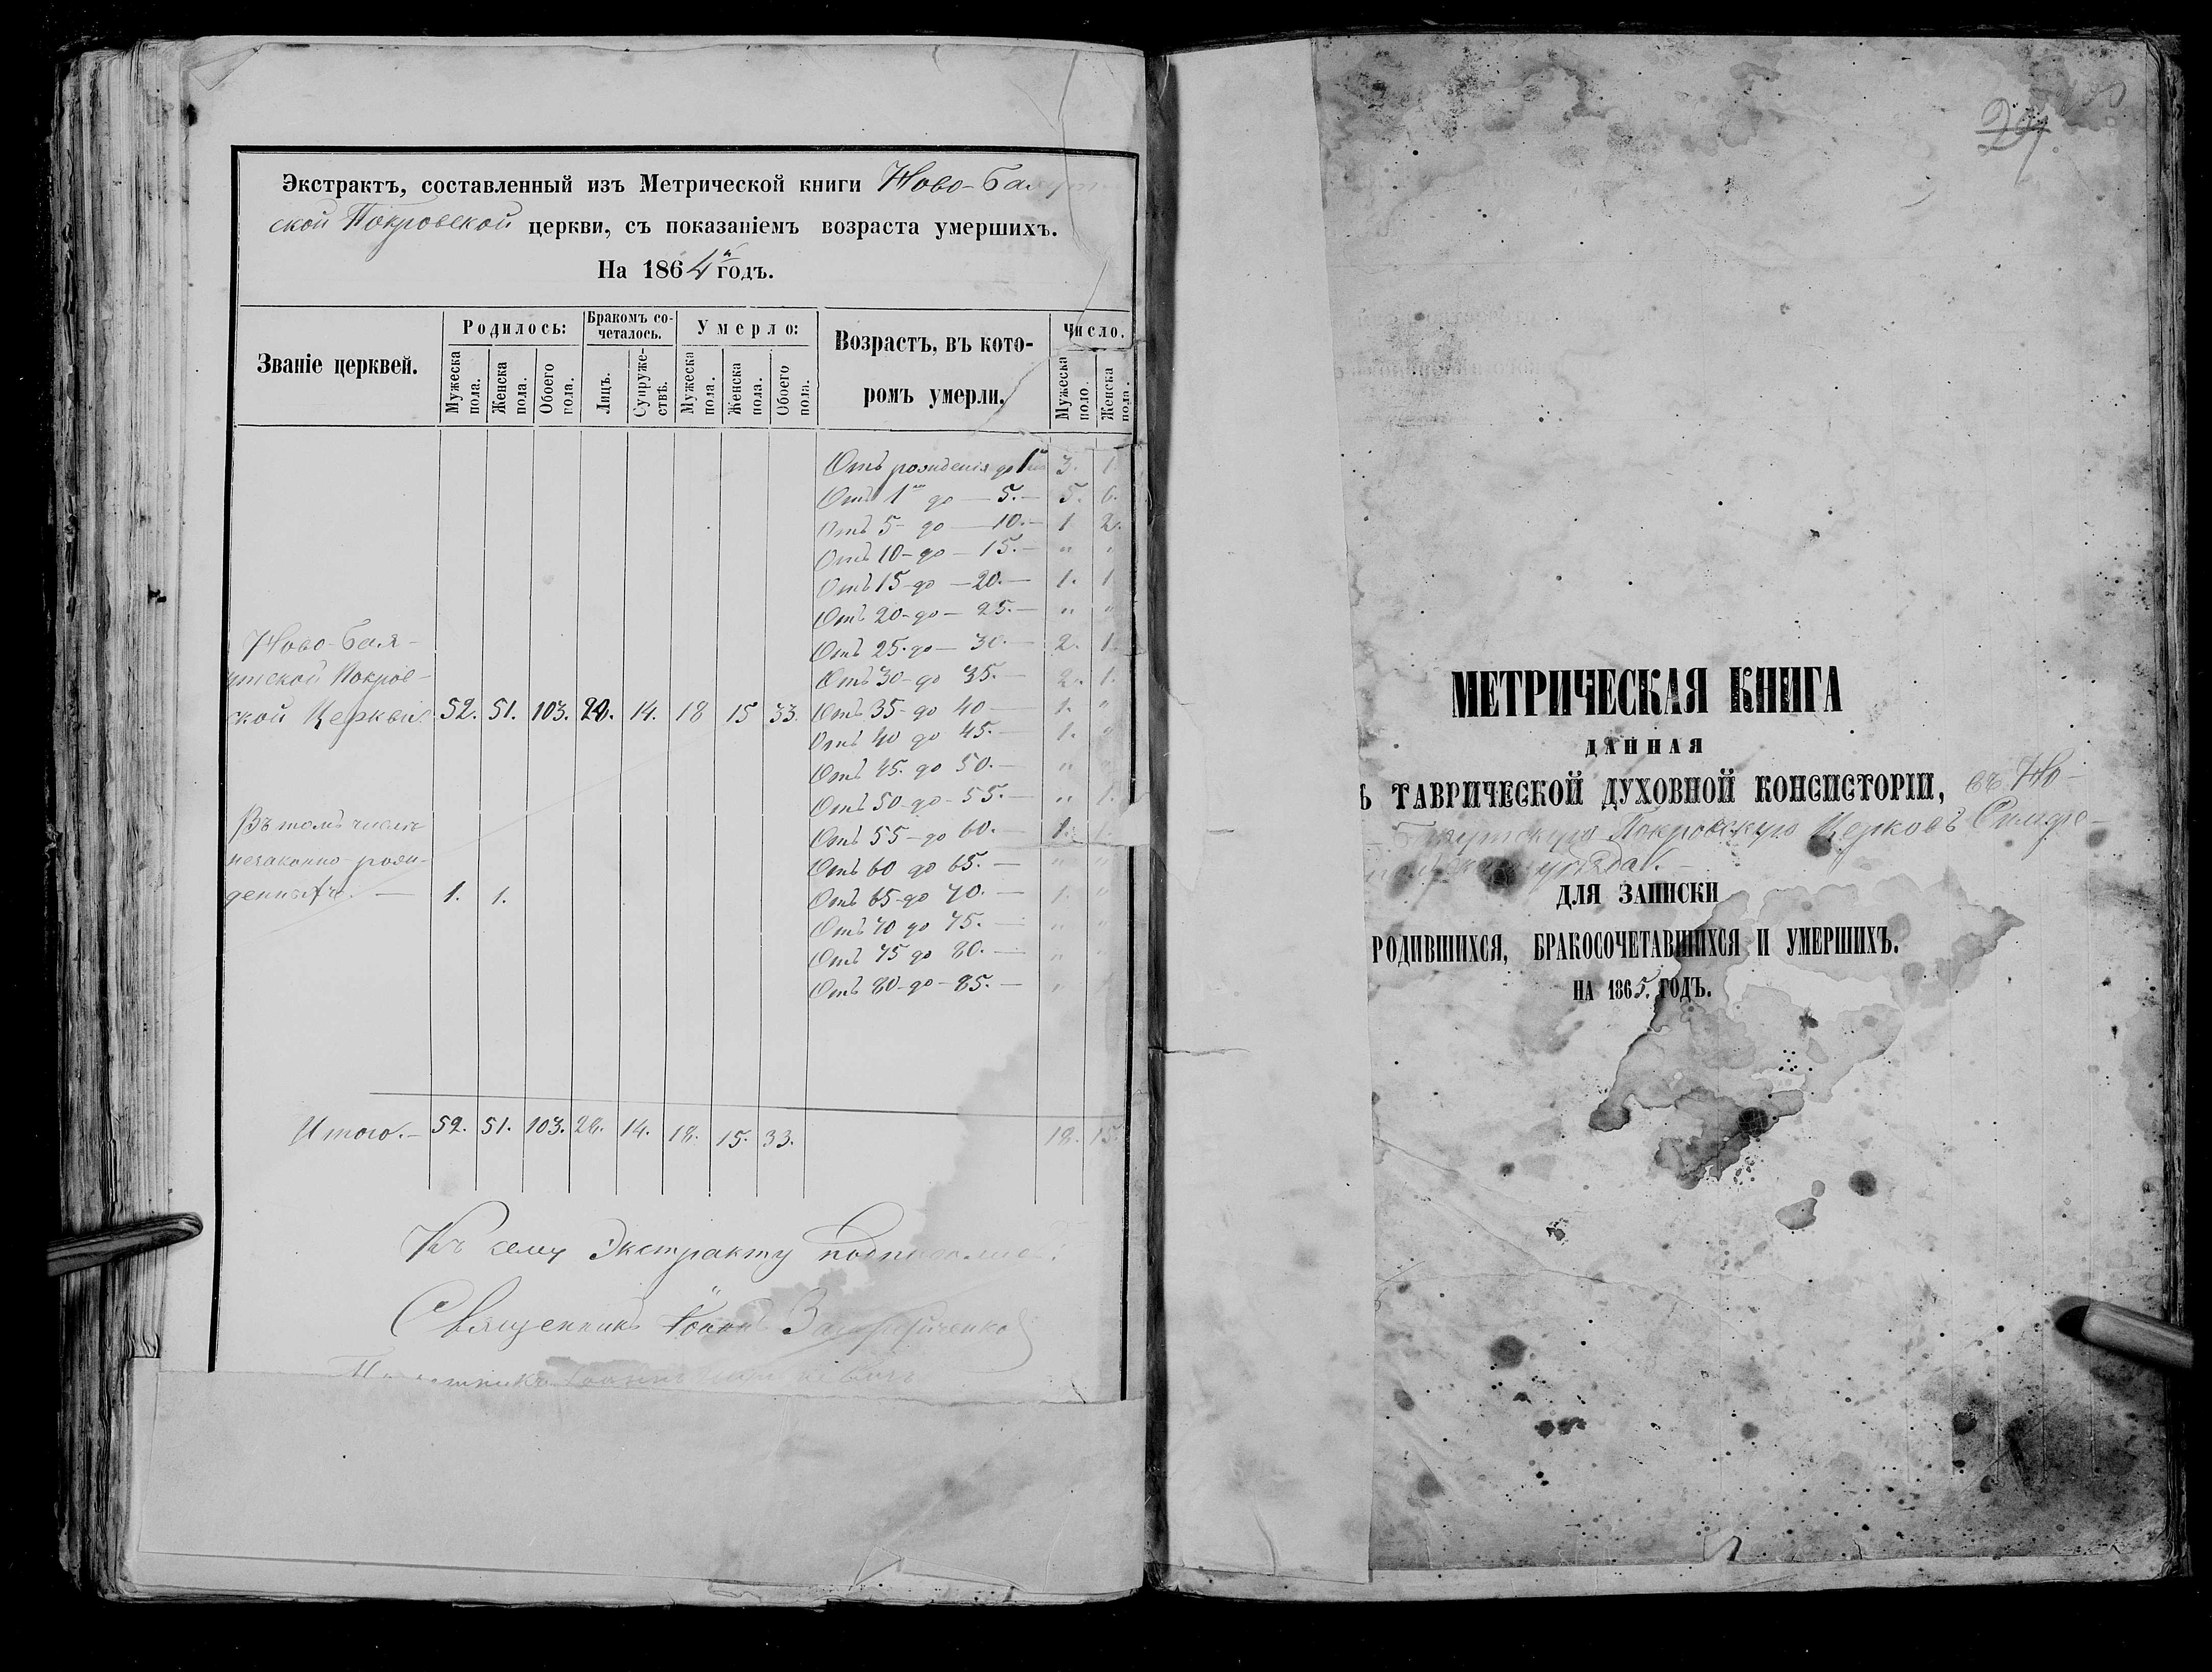 Экстрактъ, составленный изъ Метрической книги Ново-Баяут
ской Покровской церкви, съ показаніемъ возраста умершихъ.
На 1864й годъ.
Званіе церквей.
Родилось:
Мужеска пола.
Женска пола.
Обоего пола.
Бракомъ со-
четалось.
Лицъ.
Супруже-
ствъ.
Умерло:
Мужеска пола.
Женска пола.
Обоего пола.
Возрастъ, въ кото-
ромъ умерли.
Число.
Мужеска поло.
Женска пола.
Отъ рожденія до 1го 3. 1.
Отъ 1го до — 5. — 5. 6.
Отъ 5 - до — 10. — 1 2.
Отъ 10 - до — 15. — " "
Отъ 15 - до — 20. — 1. 1
Отъ 20 - до — 25. — " "
Отъ 25 - до — 30. — 2. 1.
Отъ 30 - до 35. — 2. 1.
Отъ 35 - до 40 — 1. "
Отъ 40 до 45. — 1. "
Отъ 45. до 50. — " "
Отъ 50 - до - 55. — " 1.
Отъ 55 - до 60. — 1. 1.
Отъ 60 до 65. — " "
Отъ 65 - до 70. — 1. "
Отъ 70 до 75. — " "
Отъ 75 до 80. — " "
Отъ 80 - до - 85. — "
Ново-Бая-
утской Покров-
ской Церкви. 52. 51. 103. 28. 14. 18 15 33.
Въ томъ числѣ
незаконно-рож-
денныхъ. — 1. 1.
Итого. — 52. 51. 103. 28. 14. 18. 15. 33. 18. 15.
Къ сему Экстракту подписались:
Священникъ Іоаннъ
29.
МЕТРИЧЕСКАЯ КНИГА
ДАННАЯ
Ъ ТАВРИЧЕСКОЙ ДУХОВНОЙ КОНСИСТОРІИ, въ Но-
Баяутскую Покровскую Церковь Симфе-
уѣзда.
ДЛЯ ЗАПИСКИ
РОДИВШИХСЯ, БРАКОСОЧЕТАВШИХСЯ И УМЕРШИХЪ.
НА 1865. ГОДЪ.